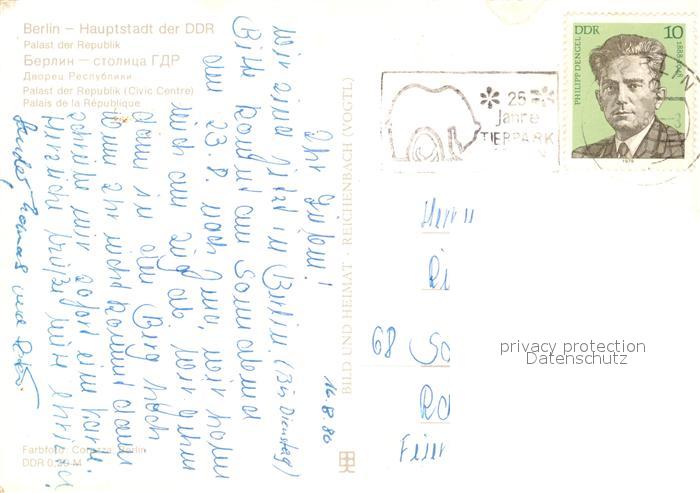 Berlin – Hauptstadt der DDR
Palast der Republik
Берлин – столица ГДР
Дворец Республики
Palast der Republik (Civic Centre)
Palais de la République
DDR 10
PHILIPP DENGEL
1888-1948
1978
25
Jahre
TIERPARK
16.8.80
Ihr
wir sind jetzt in Berlin. (Bis Dienstag)
Bitte kommt am Sonnabend
den 23.8. nach
mich am Zug ab, wir gehn
dann in den
Wenn Ihr nicht kommt dann
schreibt mir sofort eine Karte.
Herzliche Grüße
BILD UND HEIMAT · REICHENBACH (VOGTL)
Herrn
68
Farbfoto: Berlin
DDR 0,20 M
privacy protection
Datenschutz